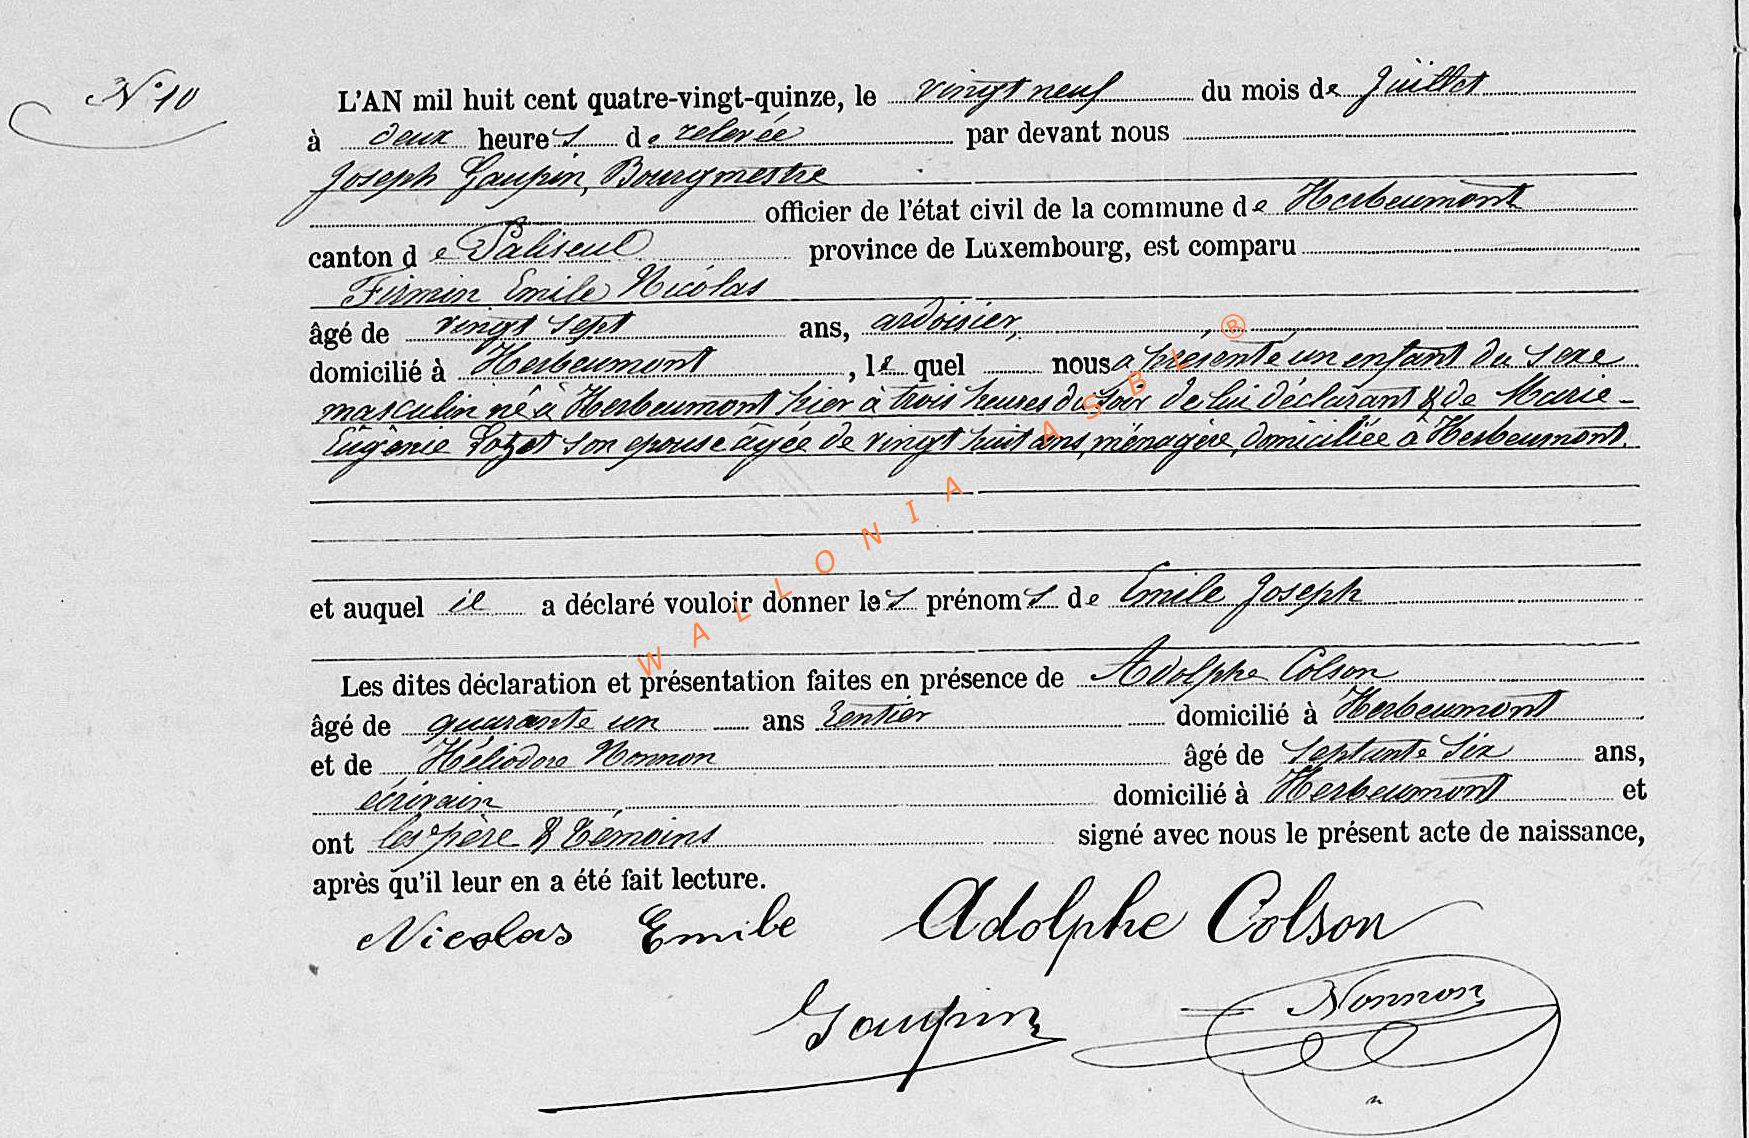 N° 10
L'AN mil huit cent quatre-vingt-quinze, le vingt neuf du mois de Juillet
à deux heures de relevée par devant nous
Joseph Gaupin, Bourgmestre
officier de l'état civil de la commune de Herbeumont
canton de Paliseul province de Luxembourg, est comparu
Firmin Emile Nicolas
âgé de vingt sept ans, ardoisier,
domicilié à Herbeumont, lequel nous a présenté un enfant du sexe
masculin né à Herbeumont hier à trois heures du soir de lui déclarant & de Marie-
Eugénie son épouse âgée de vingt huit ans, ménagère, domiciliée à Herbeumont.
et auquel il a déclaré vouloir donner les prénoms de Emile Joseph
Les dites déclaration et présentation faites en présence de Adolphe Colson
âgé de quarante un ans rentier domicilié à Herbeumont
et de Héliodore Nonnon âgé de septante six ans,
écrivain domicilié à Herbeumont et
ont les père & témoins signé avec nous le présent acte de naissance,
après qu'il leur en a été fait lecture.
Nicolas Emile Adolphe Colson
Gaupin Nonnon
WALLONIA ASBL ®